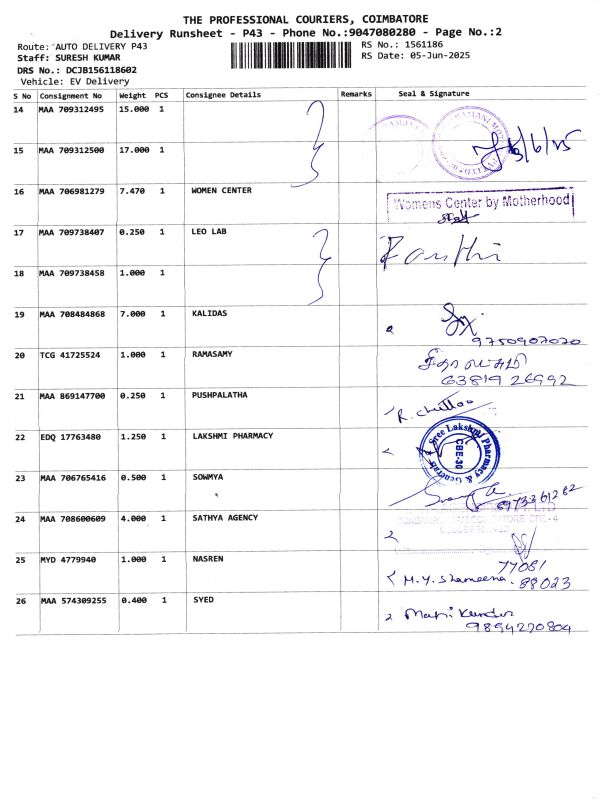 THE PROFESSIONAL COURIERS, COIMBATORE
Delivery Runsheet - P43 - Phone No.:9047080280 - Page No.:2
Route: AUTO DELIVERY P43
RS No.: 1561186
Staff: SURESH KUMAR
RS Date: 05-Jun-2025
DRS No.: DCJB156118602
Vehicle: EV Delivery
S No Consignment No Weight PCS Consignee Details Remarks Seal & Signature
14 MAA 709312495 15.000 1
15 MAA 709312500 17.000 1
16 MAA 706981279 7.470 1 WOMEN CENTER
Womens Center by Motherhood
17 MAA 709738407 0.250 1 LEO LAB
18 MAA 709738458 1.000 1
19 MAA 708484868 7.000 1 KALIDAS
9750907070
20 TCG 41725524 1.000 1 RAMASAMY
63819 26992
21 MAA 869147700 0.250 1 PUSHPALATHA
22 EDQ 17763480 1.250 1 LAKSHMI PHARMACY
Sree Lakshmi Pharmacy & Generals
CBE-30
23 MAA 706765416 0.500 1 SOWMYA
8973361282
24 MAA 708600609 4.000 1 SATHYA AGENCY
25 MYD 4779940 1.000 1 NASREN
77081
M.Y. Shameena. 88023
26 MAA 574309255 0.400 1 SYED
9894270804